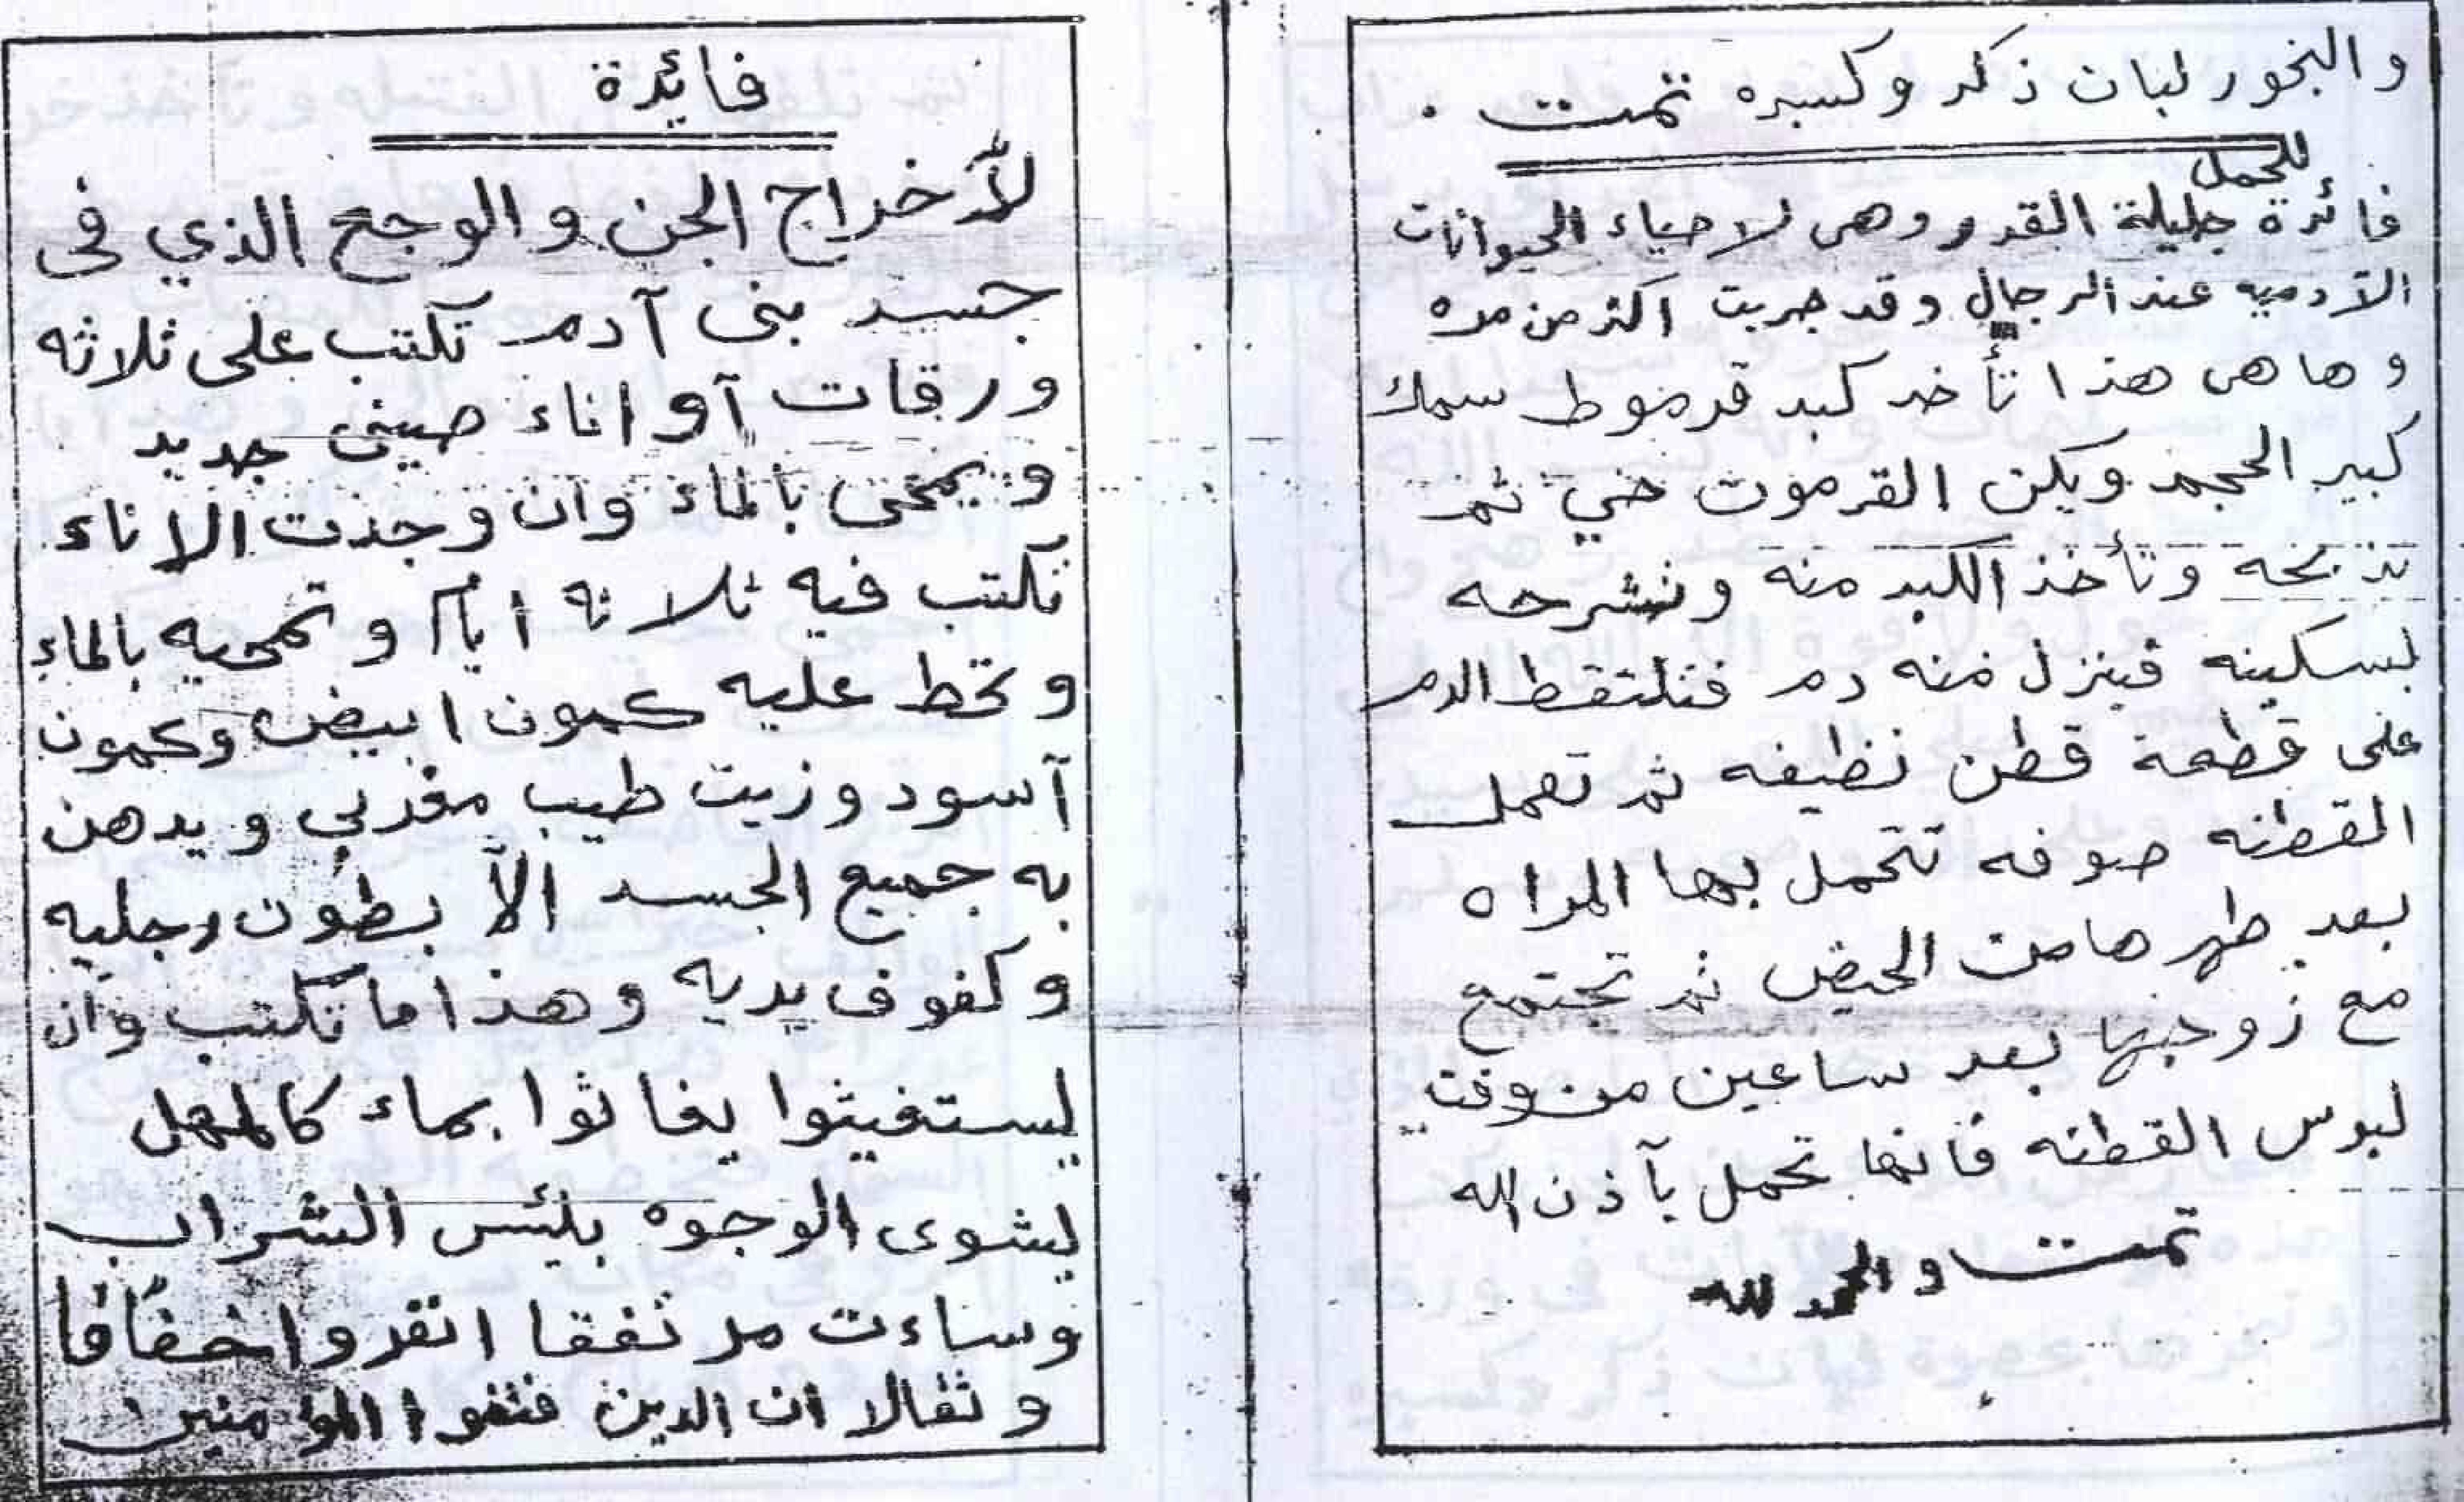 والبخور لبان ذكر وكسبره تمت .
للحمل
فائدة جليلة القدر وهى لاحياء الحيوانات
الآدميه عند الرجال وقد جربت اكثر من مره
وها هى هذا تأخد كبد قرموط سمك
كبير الحجم ويكن القرموت حي ثم
تذبحه وتأخذ الكبد منه ونشرحه
بسكينه فينزل منه دم فتلتقط الدم
على قطعة قطن نظيفه ثم تعمل
القطنه صوفه تتحمل بها المراه
بعد طهرها من الحيض ثم تجتمع
مع زوجها بعد ساعين من وقت
لبوس القطنه فانها تحمل بآذن الله
تمت والحمد لله
فائدة
لآخراج الجن والوجع الذي فى
جسد بنى آدم تكتب على ثلاثه
ورقات آو اناء صينى جديد
ويمحى بالماء وان وجدت الاناء
تكتب فيه ثلاثه ايام وتمحيه بالماء
وتحط عليه كمون ابيض وكمون
آسود وزيت طيب مغربي ويدهن
به جميع الجسد الآ بطون رجليه
وكفوف يديه وهذا ما تكتب وان
يستغيثوا يغاثوا بماء كالمهل
يشوى الوجوه بئس الشراب
وساءت مرتفقا انفروا خفافا
وثقالا ان الدين فتنوا المؤمنين